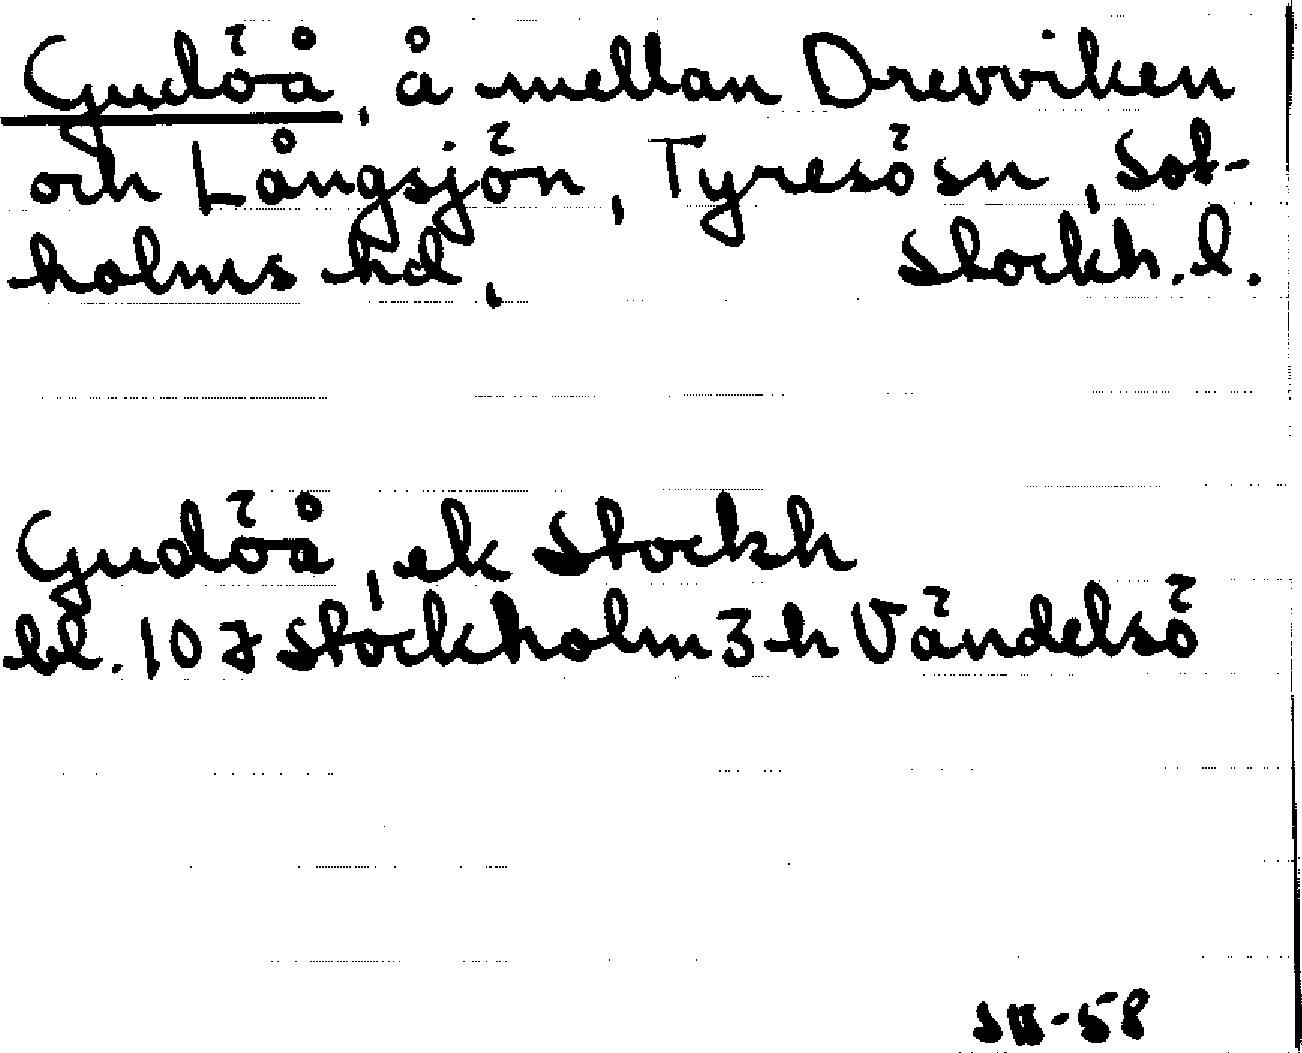 Gudöå, å mellan Drevviken
och Långsjön, Tyresö sn, Sot-
holms hd, Stockh. l.
Gudöå, ek Stockh
bl. 107 Stockholm 3 h Vändelsö
-58